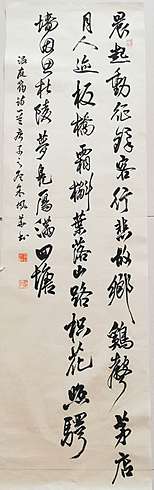 晨起動征鐸客行悲故鄉鷄聲茅店
月人迹板橋霜槲葉落山路枳花明驛
墻因思杜陵夢鳧雁滿回塘
温庭筠诗一首